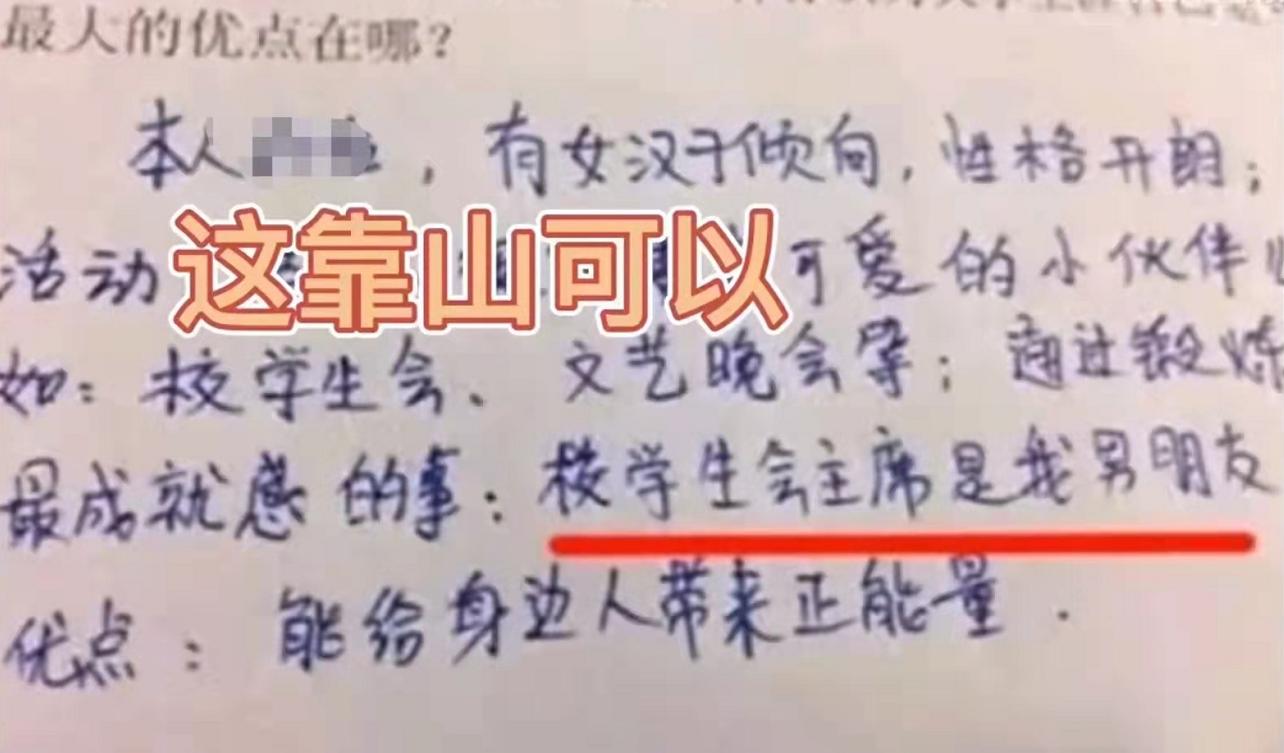 最大的优点在哪？
本人 ，有女汉子倾向，性格开朗；
活动 可爱的小伙伴
这靠山可以
如：校学生会、文艺晚会等；通过锻炼
最成就感的事：校学生会主席是我男朋友
优点：能给身边人带来正能量.